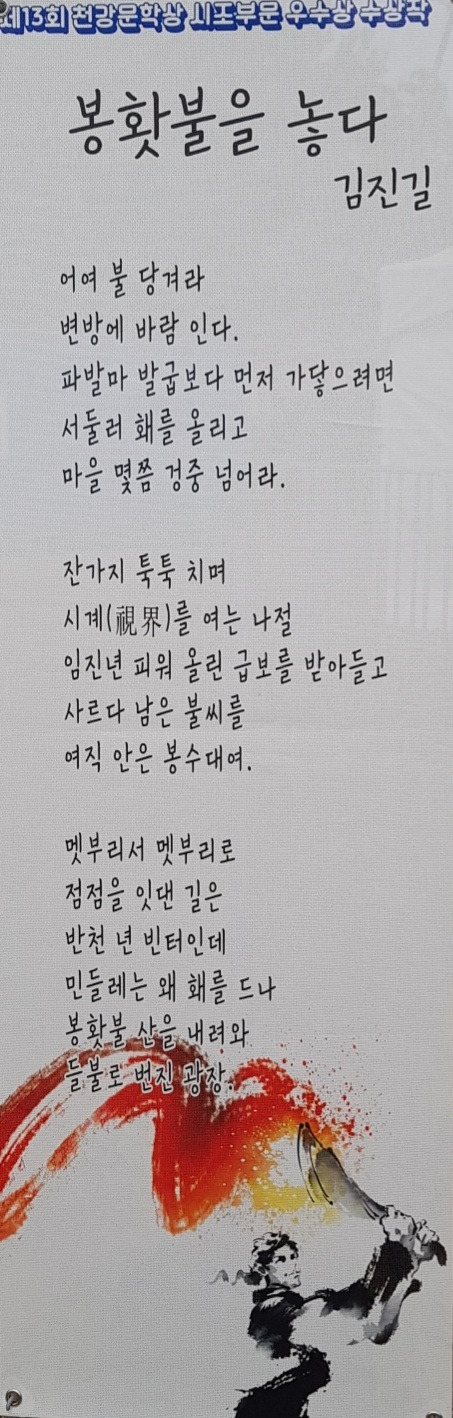 제13회 천강문학상 시조부문 우수상 수상작
봉홧불을 놓다
김진길
어여 불 당겨라
변방에 바람 인다.
파발마 발굽보다 먼저 가닿으려면
서둘러 홰를 올리고
마을 몇쯤 겅중 넘어라.
잔가지 툭툭 치며
시계(視界)를 여는 나절
임진년 피워 올린 급보를 받아들고
사르다 남은 불씨를
여직 안은 봉수대여.
멧부리서 멧부리로
점점을 잇댄 길은
반천 년 빈터인데
민들레는 왜 홰를 드나
봉홧불 산을 내려와
들불로 번진 광장.